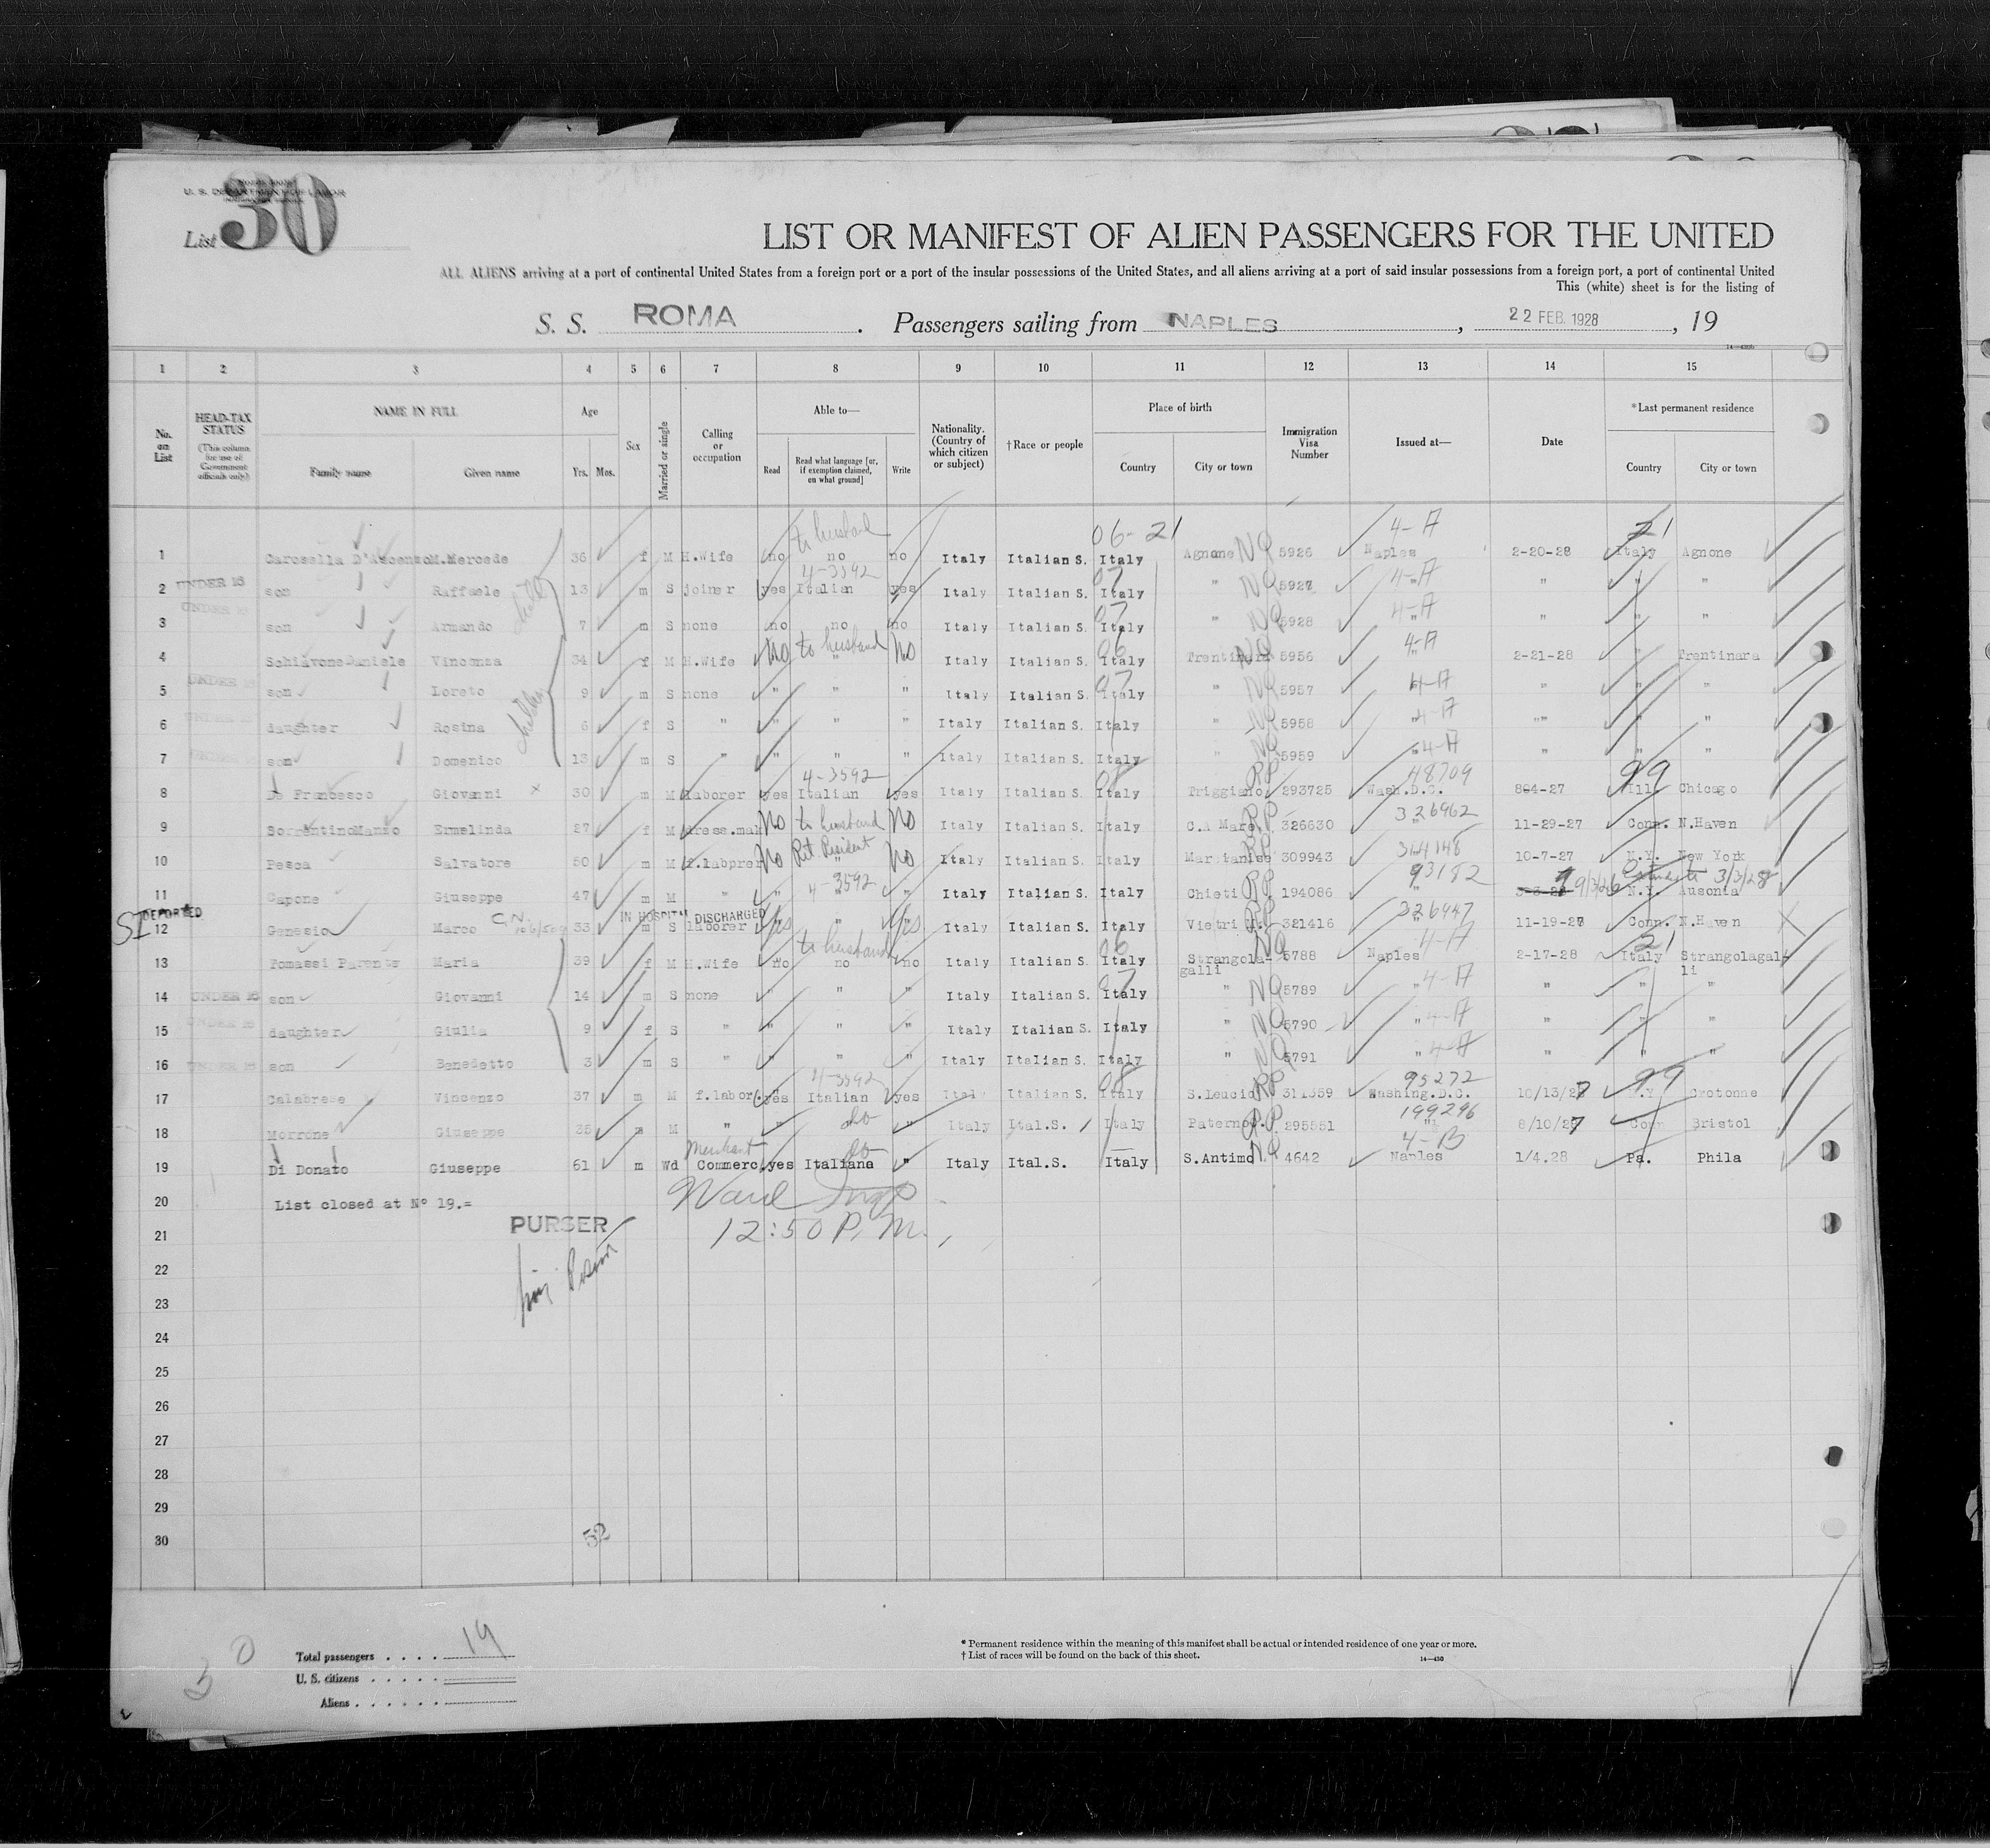 U. S. DEPARTMENT OF LABOR
List 30
LIST OR MANIFEST OF ALIEN PASSENGERS FOR THE UNITED
ALL ALIENS arriving at a port of continental United States from a foreign port or a port of the insular possessions of the United States, and all aliens arriving at a port of said insular possessions from a foreign port, a port of continental United
This (white) sheet is for the listing of
S. S. ROMA . Passengers sailing from NAPLES , 22 FEB. 1928 , 19
1 2 3 4 5 6 7 8 9 10 11 12 13 14 15
No. on List
HEAD-TAX STATUS (This column for use of Government officials only)
NAME IN FULL Family name Given name
Age Yrs. Mos.
Sex
Married or single
Calling or occupation
Able to— Read Read what language [or, if exemption claimed, on what ground] Write
Nationality. (Country of which citizen or subject)
†Race or people
Place of birth Country City or town
Immigration Visa Number
Issued at—
Date
*Last permanent residence Country City or town
to husband 06-21 4-A 21
1 Carosella D'Ascenzo M.Mercede 36 f M H.Wife no no no Italy Italian S. Italy Agnone NQ 5926 Naples 2-20-28 Italy Agnone
4-3592 07 4-A
2 UNDER 16 son Raffaele 13 m S joiner yes Italian yes Italy Italian S. Italy " NQ 5927 " " " "
07 4-A
3 UNDER 16 son Armando 7 m S none no no no Italy Italian S. Italy " NQ 5928 " " " "
No to husband No 06 4-A
4 Schiavone Daniele Vincenza 34 f M H.Wife " Italy Italian S. Italy Trentinara NQ 5956 " 2-21-28 " Trentinara
5 UNDER 16 son Loreto 9 m S none " " " Italy Italian S. Italy " NQ 5957 4-A " " "
6 UNDER 16 daughter Rosina 6 f S " " " " Italy Italian S. Italy " NQ 5958 " 4-A "" " "
7 UNDER 16 son Domenico 13 m S " " " " Italy Italian S. Italy " NQ 5959 " 4-A " " "
4-3592 RP 48709 99
8 De Francesco Giovanni x 30 m M laborer yes Italian yes Italy Italian S. Italy Triggiano 293725 Wash.D.C. 804-27 Ill. Chicago
No to husband No RP 326962
9 Sorrentino Manzo Ermelinda 27 f M dress.mak Italy Italian S. Italy C.A Mare 326630 " 11-29-27 Conn. N.Haven
No Ret. Resident No RP 344148
10 Pesca Salvatore 50 m M f.labprer " Italy Italian S. Italy Marcianise 309943 10-7-27 N.Y. New York
4-3592 93182 3/3/28
11 Capone Giuseppe 47 m M " " " " Italy Italian S. Italy Chieti RP 194086 " 9/3/26 N.Y. Ausonia
SI DEPORTED IN HOSPITAL DISCHARGED 326447
12 Genesio Marco 33 m S laborer yes " yes Italy Italian S. Italy Vietri RP 321416 " 11-19-27 Conn. N.Haven
to husband 06 NQ 4-A 21
13 Tomassi Parente Maria 39 f M H.Wife no no no Italy Italian S. Italy Strangola-galli 5788 Naples 2-17-28 Italy Strangolagalli
07
14 UNDER 16 son Giovanni 14 m S none " " " Italy Italian S. Italy " NQ 5789 " 4-A " " "
15 UNDER 16 daughter Giulia 9 f S " " " " Italy Italian S. Italy " NQ 5790 " 4-A " " "
16 UNDER 16 son Benedetto 3 m S " " " " Italy Italian S. Italy " NQ 5791 " 4-A " " "
4-3592 08 95272 99
17 Calabrese Vincenzo 37 m M f.labor. yes Italian yes Italy Italian S. Italy S.Leucio RP 311559 Washing.D.C. 10/13/27 N.Y. Crotonne
do 199296
18 Morrone Giuseppe 35 m M " " " Italy Ital.S. Italy Paterno RP 295551 " 8/10/27 Conn Bristol
Merchant do NQ 4-B
19 Di Donato Giuseppe 61 m Wd Commerc. yes Italiana " Italy Ital.S. Italy S.Antimo 4642 Naples 1/4.28 Pa. Phila
20 List closed at Nº 19.= Ward Insp
PURSER
21 12:50 P.M.
22
23
24
25
26
27
28
29
30
52
Total passengers . . . . 19
U. S. citizens . . . . .
Aliens . . . . . .
30
* Permanent residence within the meaning of this manifest shall be actual or intended residence of one year or more.
† List of races will be found on the back of this sheet.
14—430